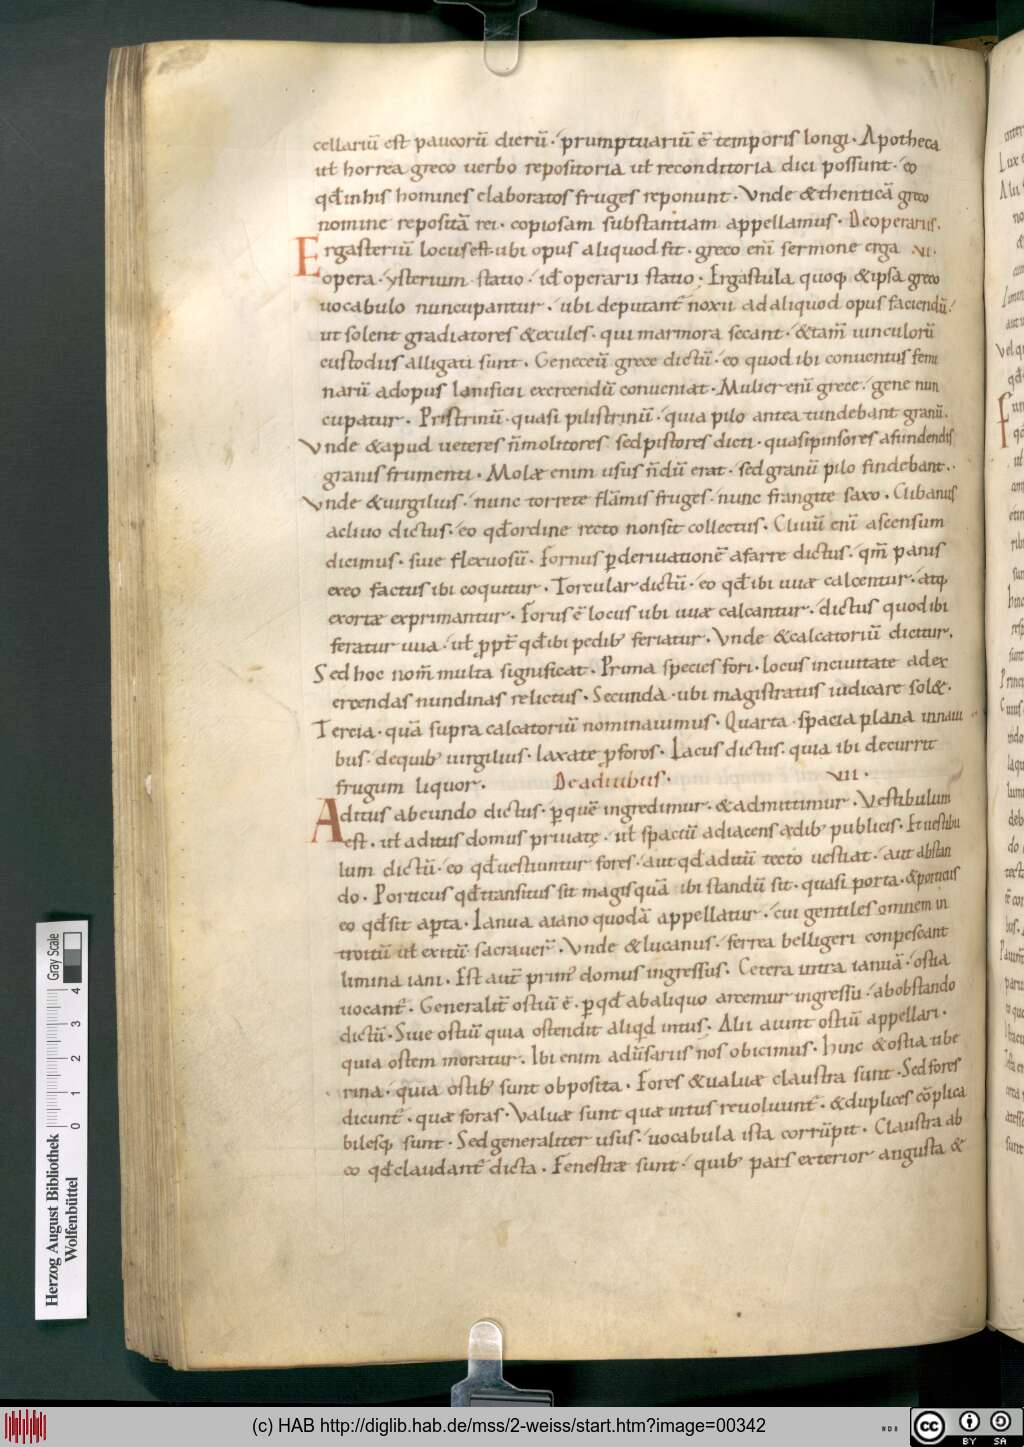 cellariū est paucorū dierū · prumptuariū ē temporis longi · Apotheca
uł horrea greco uerbo repositoria uł reconditoria dici possunt · eo
qđ in his homines elaboratos fruges reponunt · Vnde & thenticā greco
nomine repositā rei · copiosam substantiam appellamus · De operariis.
Ergasteriū locus est · ubi opus aliquod fit · greco enī sermone erga VI·
opera · ysterium · statio · id operarii statio · Ergastula quoq & ipsa greco
uocabulo nuncupantur · ubi deputant̄ noxii ad aliquod opus faciendū ·
ut solent gradiatores & exules · qui marmora secant · & tam̄ uinculorū
custodiis alligati sunt · Geneceū grece dictū · eo quod ibi conuentus femi
narū ad opus lanificii exercendū conueniat · Mulier enī grece · gene nun
cupatur · Pristrinū · quasi pilistrinū · quia pilo antea tundebant granū ·
Vnde & apud ueteres n̄ molitores sed pistores dicti · quasi pinsores a fundendis
granis frumenti · Molæ enim usus n̄dū erat · sed granū pilo findebant ·
Vnde & uirgilius · nunc torrete flām̄is fruges · nunc frangite saxo · Clibanus
acliuo dictus · eo qđ ordine recto non sit collectus · Cliuū enī ascensum
dicimus · siue flexuosū · Fornus p deriuationē a farre dictus · qm̄ panis
exeo factus ibi coquitur · Torcular dictū · eo qđ ibi uuæ calcentur · atq
exortæ exprimantur · Forus ē locus ubi uuæ calcantur · dictus quod ibi
feratur uua · uł ppt̄ qđ ibi pedib feriatur · Vnde & calcatoriū dicitur ·
Sed hoc nom̄ multa significat · Prima species fori · locus in ciuitate ad ex
ercendas nundinas relictus · Secunda · ubi magistratus iudicare sol& ·
Tercia · quā supra calcatoriū nominauimus · Quarta · spacia plana in naui
bus · de quib uirgilius · laxate p foros · Lacus dictus · quia ibi decurrit
frugum liquor · De aditibus · VII ·
Aditus ab eundo dictus · p quē ingredimur · & admittimur · Vestibulum
est · uł aditus domus priuatę · uł spaciū adiacens ædib publicis · Et uestibu
lum dictū · eo qđ uestiuntur fores · aut qđ aditū tecto uestiat · aut abstan
do · Porticus qđ transitus sit magis quā ibi standū sit · quasi porta · & porticus
eo qđ sit apta · Ianua a iano quodā appellatur · cui gentiles omnem in
troitū uł exitū sacrauer̄ · Vnde & lucanus · ferrea belligeri conpescant
limina iani · Est aut̄ prim domus ingressus · Cetera intra ianuā · ostia
uocant̄ · Generalit̄ ostiū ē · p qđ ab aliquo arcemur ingressu · ab obstando
dictū · Siue ostiū quia ostendit aliqđ intus · Alii aiunt ostiū appellari ·
quia ostem moratur · Ibi enim adu̅sariis nos obicimus · hinc & ostia tibe
rina · quia ostib sunt obposita · Fores & ualuæ claustra sunt · Sed fores
dicunt̄ · quæ foras · Valuæ sunt quæ intus reuoluunt̄ · & duplices cōplica
bilesq sunt · Sed generaliter usus · uocabula ista corrūpit · Claustra ab
eo qđ claudant̄ dicta · Fenestræ sunt · quib pars exterior angusta &
Herzog August Bibliothek
Wolfenbüttel
0 1 2 3 4
Gray Scale
(c) HAB http://diglib.hab.de/mss/2-weiss/start.htm?image=00342
cc BY SA